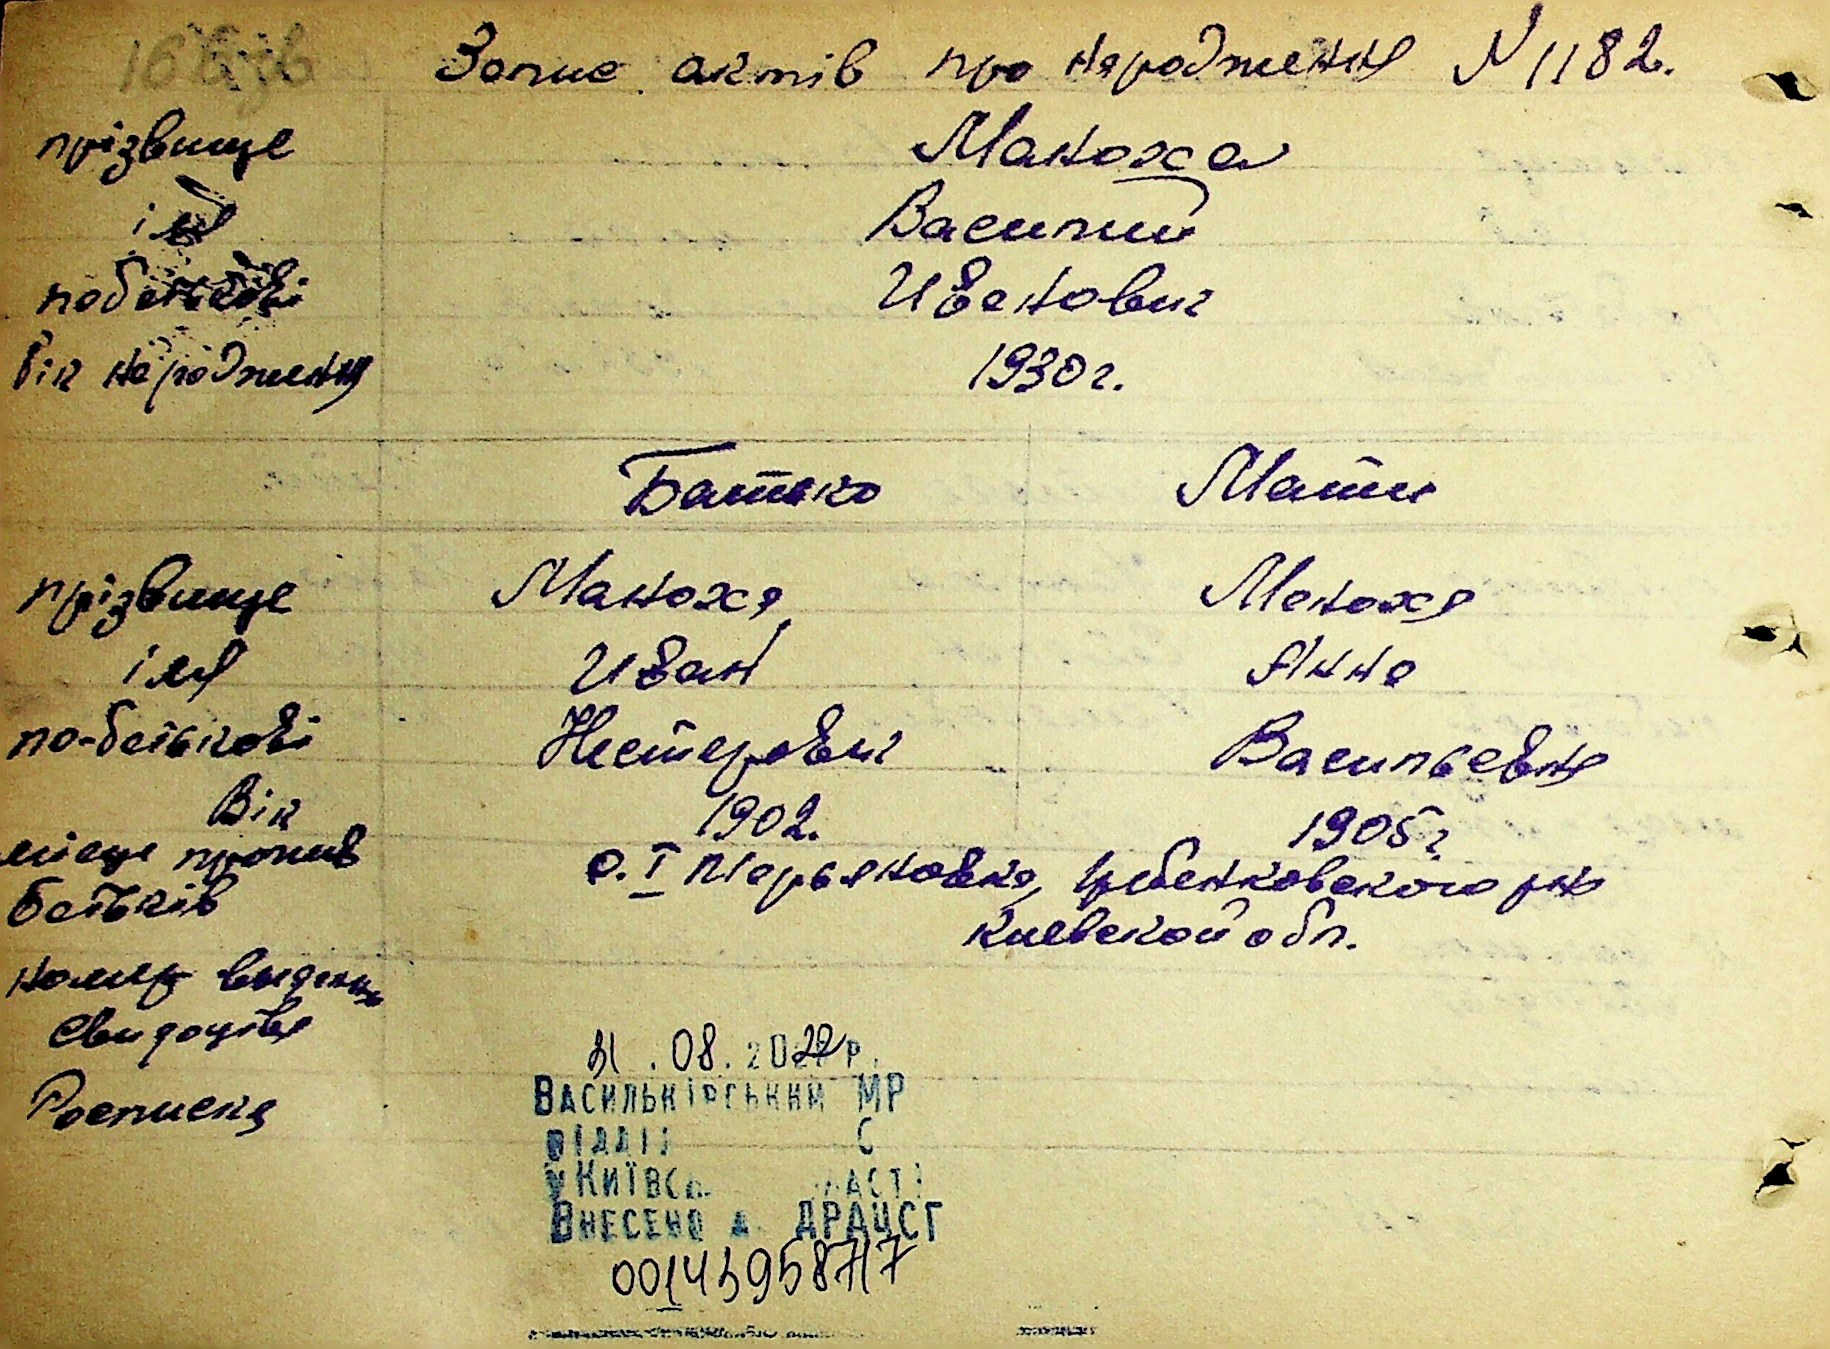 Запис актів про народження N 1182.
прізвище Маноха
імя Василий
побатькові Иванович
Рік народження 1930 г.
Батько Мати
прізвище Маноха Маноха
імя Иван Анна
по-батькові Нестерович Васильевна
Вік 1902. 1905 г.
місце прожив с. I Марьяновка, Гребенковского рн
батьків Киевской обл.
номер выдан
Свидоцтва
Росписка
31.08.2022 р.
ВАСИЛЬКІВСЬКИЙ МР
У КИЇВС
ВНЕСЕНО ДРАЦСГ